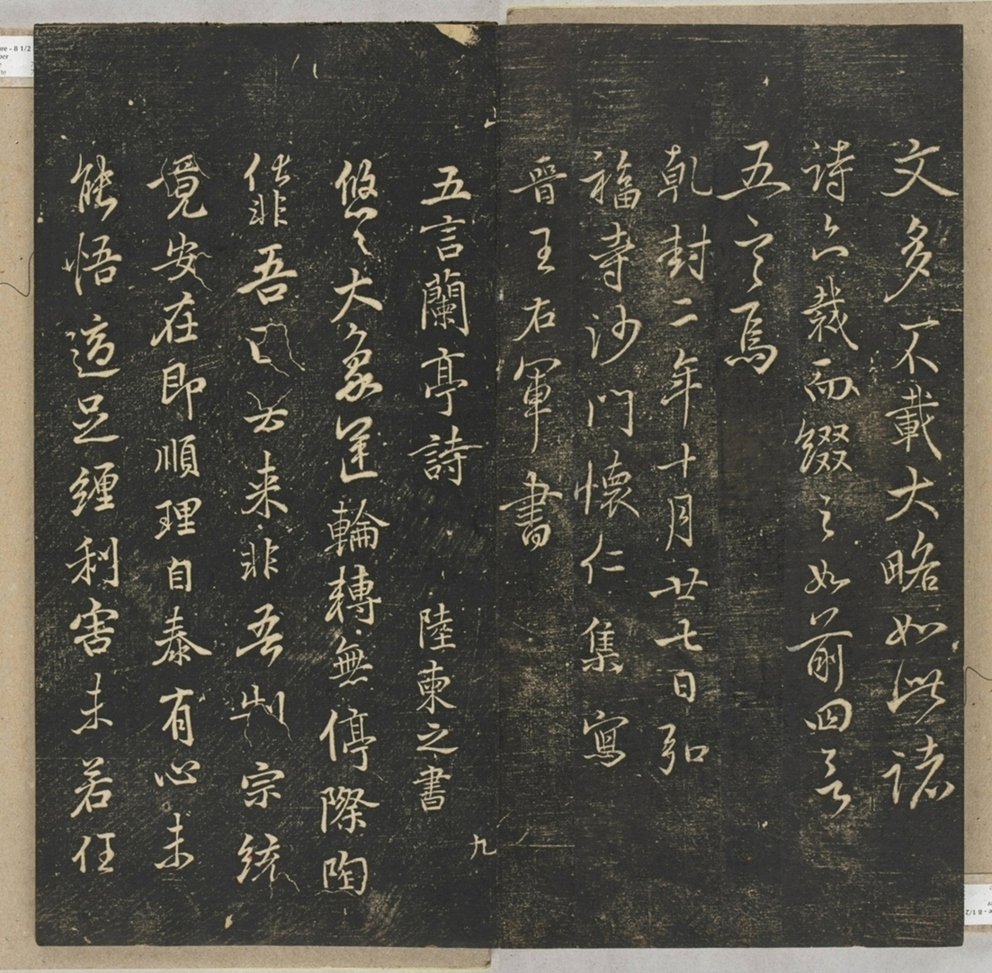 文多不載大略如此諸
詩亦裁而綴之如前四言
五言焉
乾封二年十月廿七日弘
福寺沙門懷仁集寫
晉王右軍書
五言蘭亭詩 陸柬之書
九
悠悠大象運輪轉無停際陶
化非吾匕去來非吾制宗統
竟安在即順理自泰有心未
能悟適足纏利害未若任
re - 8 1/2